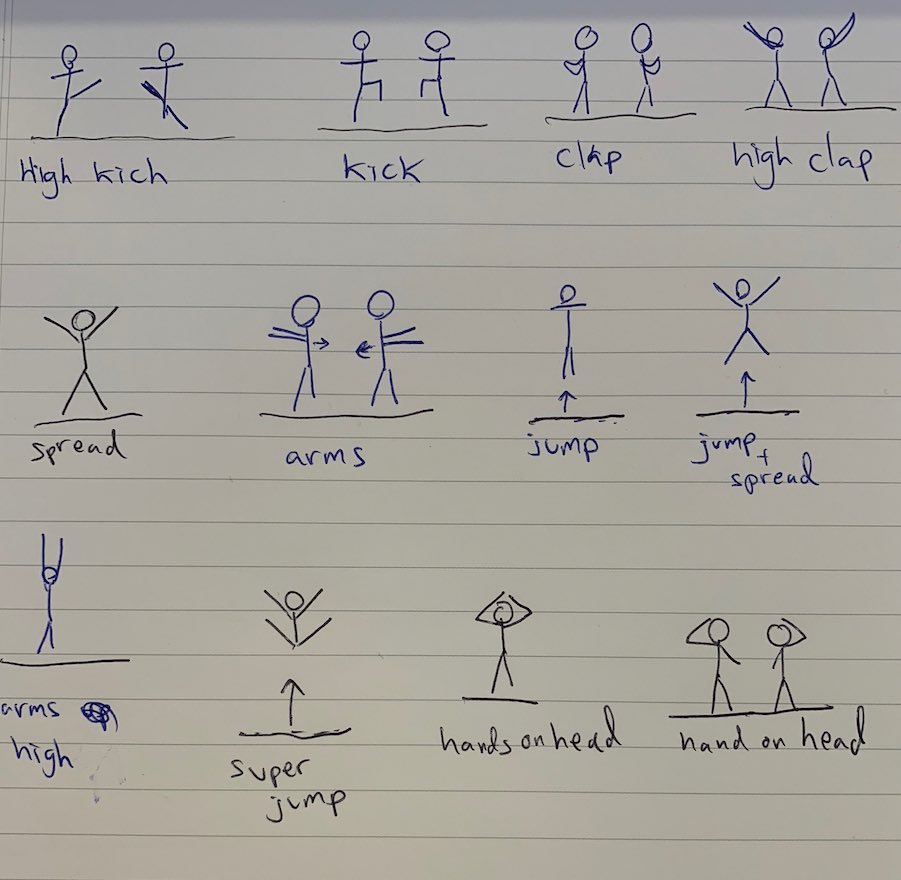 High kich
kick
clap
high clap
spread
arms
jump
jump +
spread
arms
high
super
jump
hands on head
hand on head